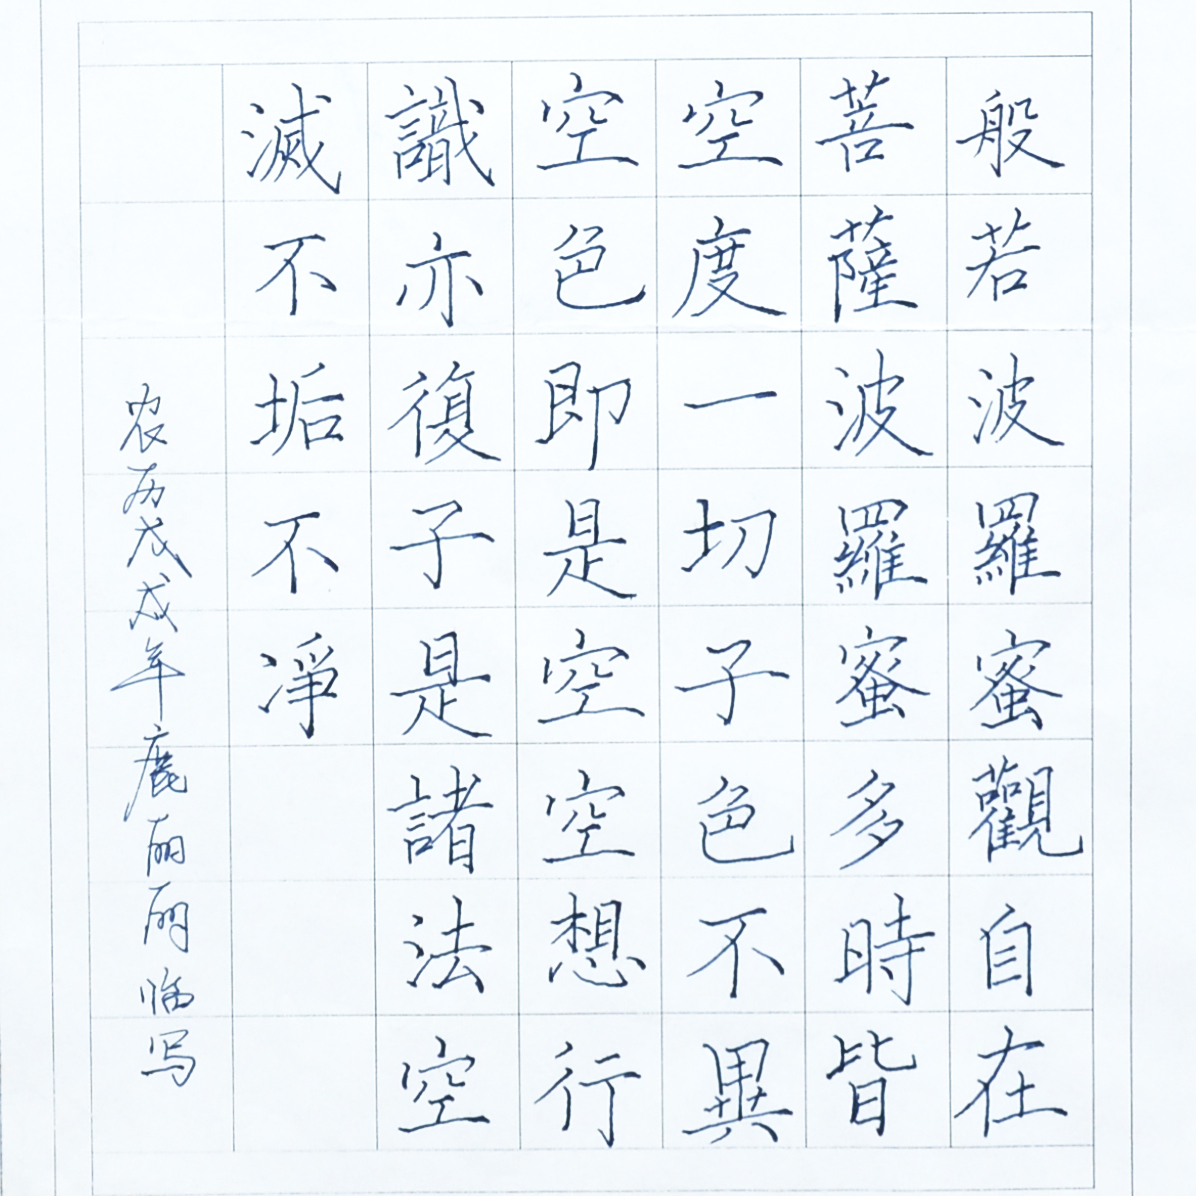 般若波羅蜜觀自在
菩薩波羅蜜多時皆
空度一切子色不異
空色即是空空想行
識亦復子是諸法空
滅不垢不淨
农历戊戌年鹿丽丽临写